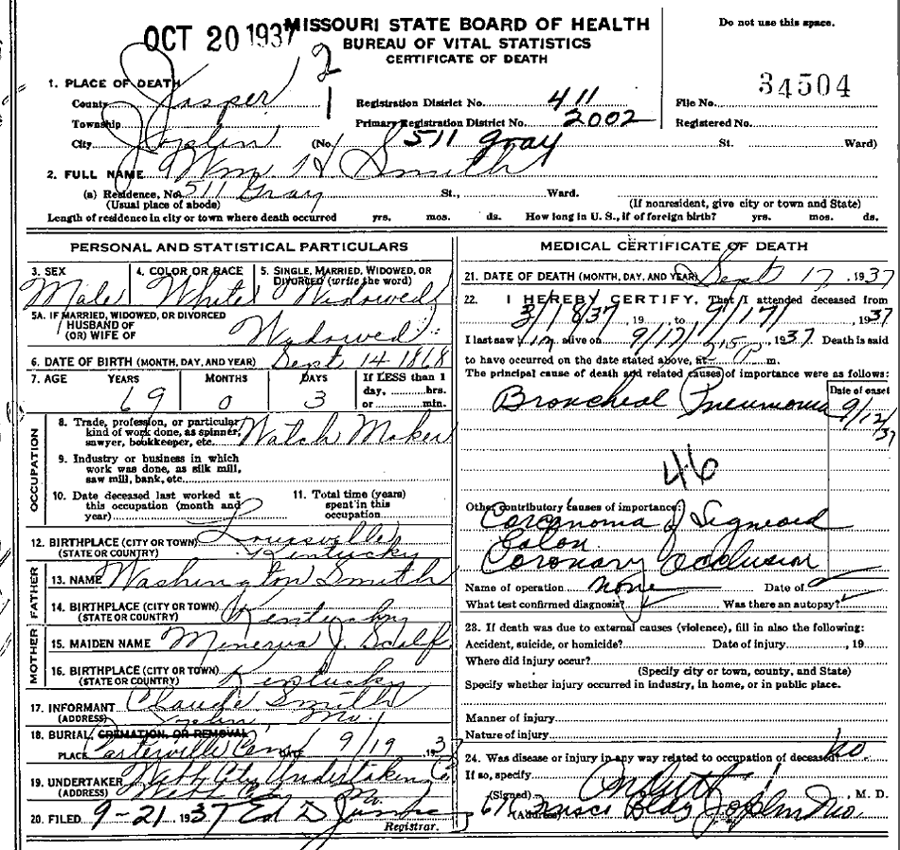 OCT 20 1937
MISSOURI STATE BOARD OF HEALTH
BUREAU OF VITAL STATISTICS
CERTIFICATE OF DEATH
Do not use this space.
34504
2
1
1. PLACE OF DEATH
County Jasper
Township
City Joplin (No. 511 Gray St. Ward)
Registration District No. 411
Primary Registration District No. 2002
File No.
Registered No.
2. FULL NAME Wm H Smith
(a) Residence, No. 511 Gray St., Ward.
(Usual place of abode) (If nonresident, give city or town and State)
Length of residence in city or town where death occurred yrs. mos. ds. How long in U. S., if of foreign birth? yrs. mos. ds.
PERSONAL AND STATISTICAL PARTICULARS
3. SEX Male
4. COLOR OR RACE White
5. SINGLE, MARRIED, WIDOWED, OR DIVORCED (write the word) Widowed
5A. IF MARRIED, WIDOWED, OR DIVORCED
HUSBAND OF
(OR) WIFE OF Wydowed
6. DATE OF BIRTH (MONTH, DAY, AND YEAR) Sept 14 1868
7. AGE YEARS MONTHS DAYS If LESS than 1
day, hrs.
or min.
69 0 3
OCCUPATION
8. Trade, profession, or particular
kind of work done, as spinner,
sawyer, bookkeeper, etc. Watch Maker
9. Industry or business in which
work was done, as silk mill,
saw mill, bank, etc.
10. Date deceased last worked at
this occupation (month and
year)
11. Total time (years)
spent in this
occupation
12. BIRTHPLACE (CITY OR TOWN) Louisville
(STATE OR COUNTRY) Kentucky
FATHER
13. NAME Washington Smith
14. BIRTHPLACE (CITY OR TOWN)
(STATE OR COUNTRY) Kentucky
MOTHER
15. MAIDEN NAME Minerva J. Scalf
16. BIRTHPLACE (CITY OR TOWN)
(STATE OR COUNTRY) Kentucky
17. INFORMANT Claude Smith
(ADDRESS) Joplin, Mo.
18. BURIAL, CREMATION, OR REMOVAL
PLACE Carterville Cem DATE 9/19 1937
19. UNDERTAKER Webb City Undertaken Co
(ADDRESS) Webb City Mo
20. FILED 9-21 1937 Ed D
Registrar.
MEDICAL CERTIFICATE OF DEATH
21. DATE OF DEATH (MONTH, DAY, AND YEAR) Sept 17, 1937
22. I HEREBY CERTIFY, That I attended deceased from
3/18/37, 19 to 9/17/, 1937
I last saw him alive on 9/17/, 1937. Death is said
to have occurred on the date stated above, at 515P m.
The principal cause of death and related causes of importance were as follows:
Date of onset
Bronchial Pneumonia 9/12/37
46
Other contributory causes of importance:
Carcinoma of Sigmoid
Colon
Coronary Occlusion
Name of operation none Date of
What test confirmed diagnosis? Was there an autopsy?
23. If death was due to external causes (violence), fill in also the following:
Accident, suicide, or homicide? Date of injury , 19
Where did injury occur?
(Specify city or town, county, and State)
Specify whether injury occurred in industry, in home, or in public place.
Manner of injury
Nature of injury
24. Was disease or injury in any way related to occupation of deceased? no
If so, specify
(Signed) , M. D.
(Address) Frisco Bldg Joplin Mo.